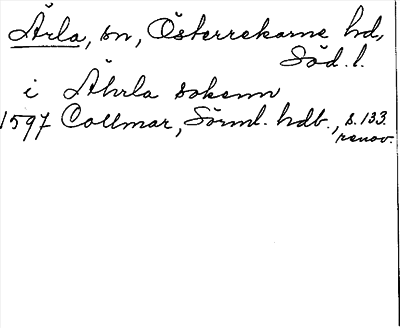 Ärla, sn, Österrekarne hd,
Söd. l.
i Ährla sokenn
1597 Collmar, Sörml. hdb., s. 133.
renov.